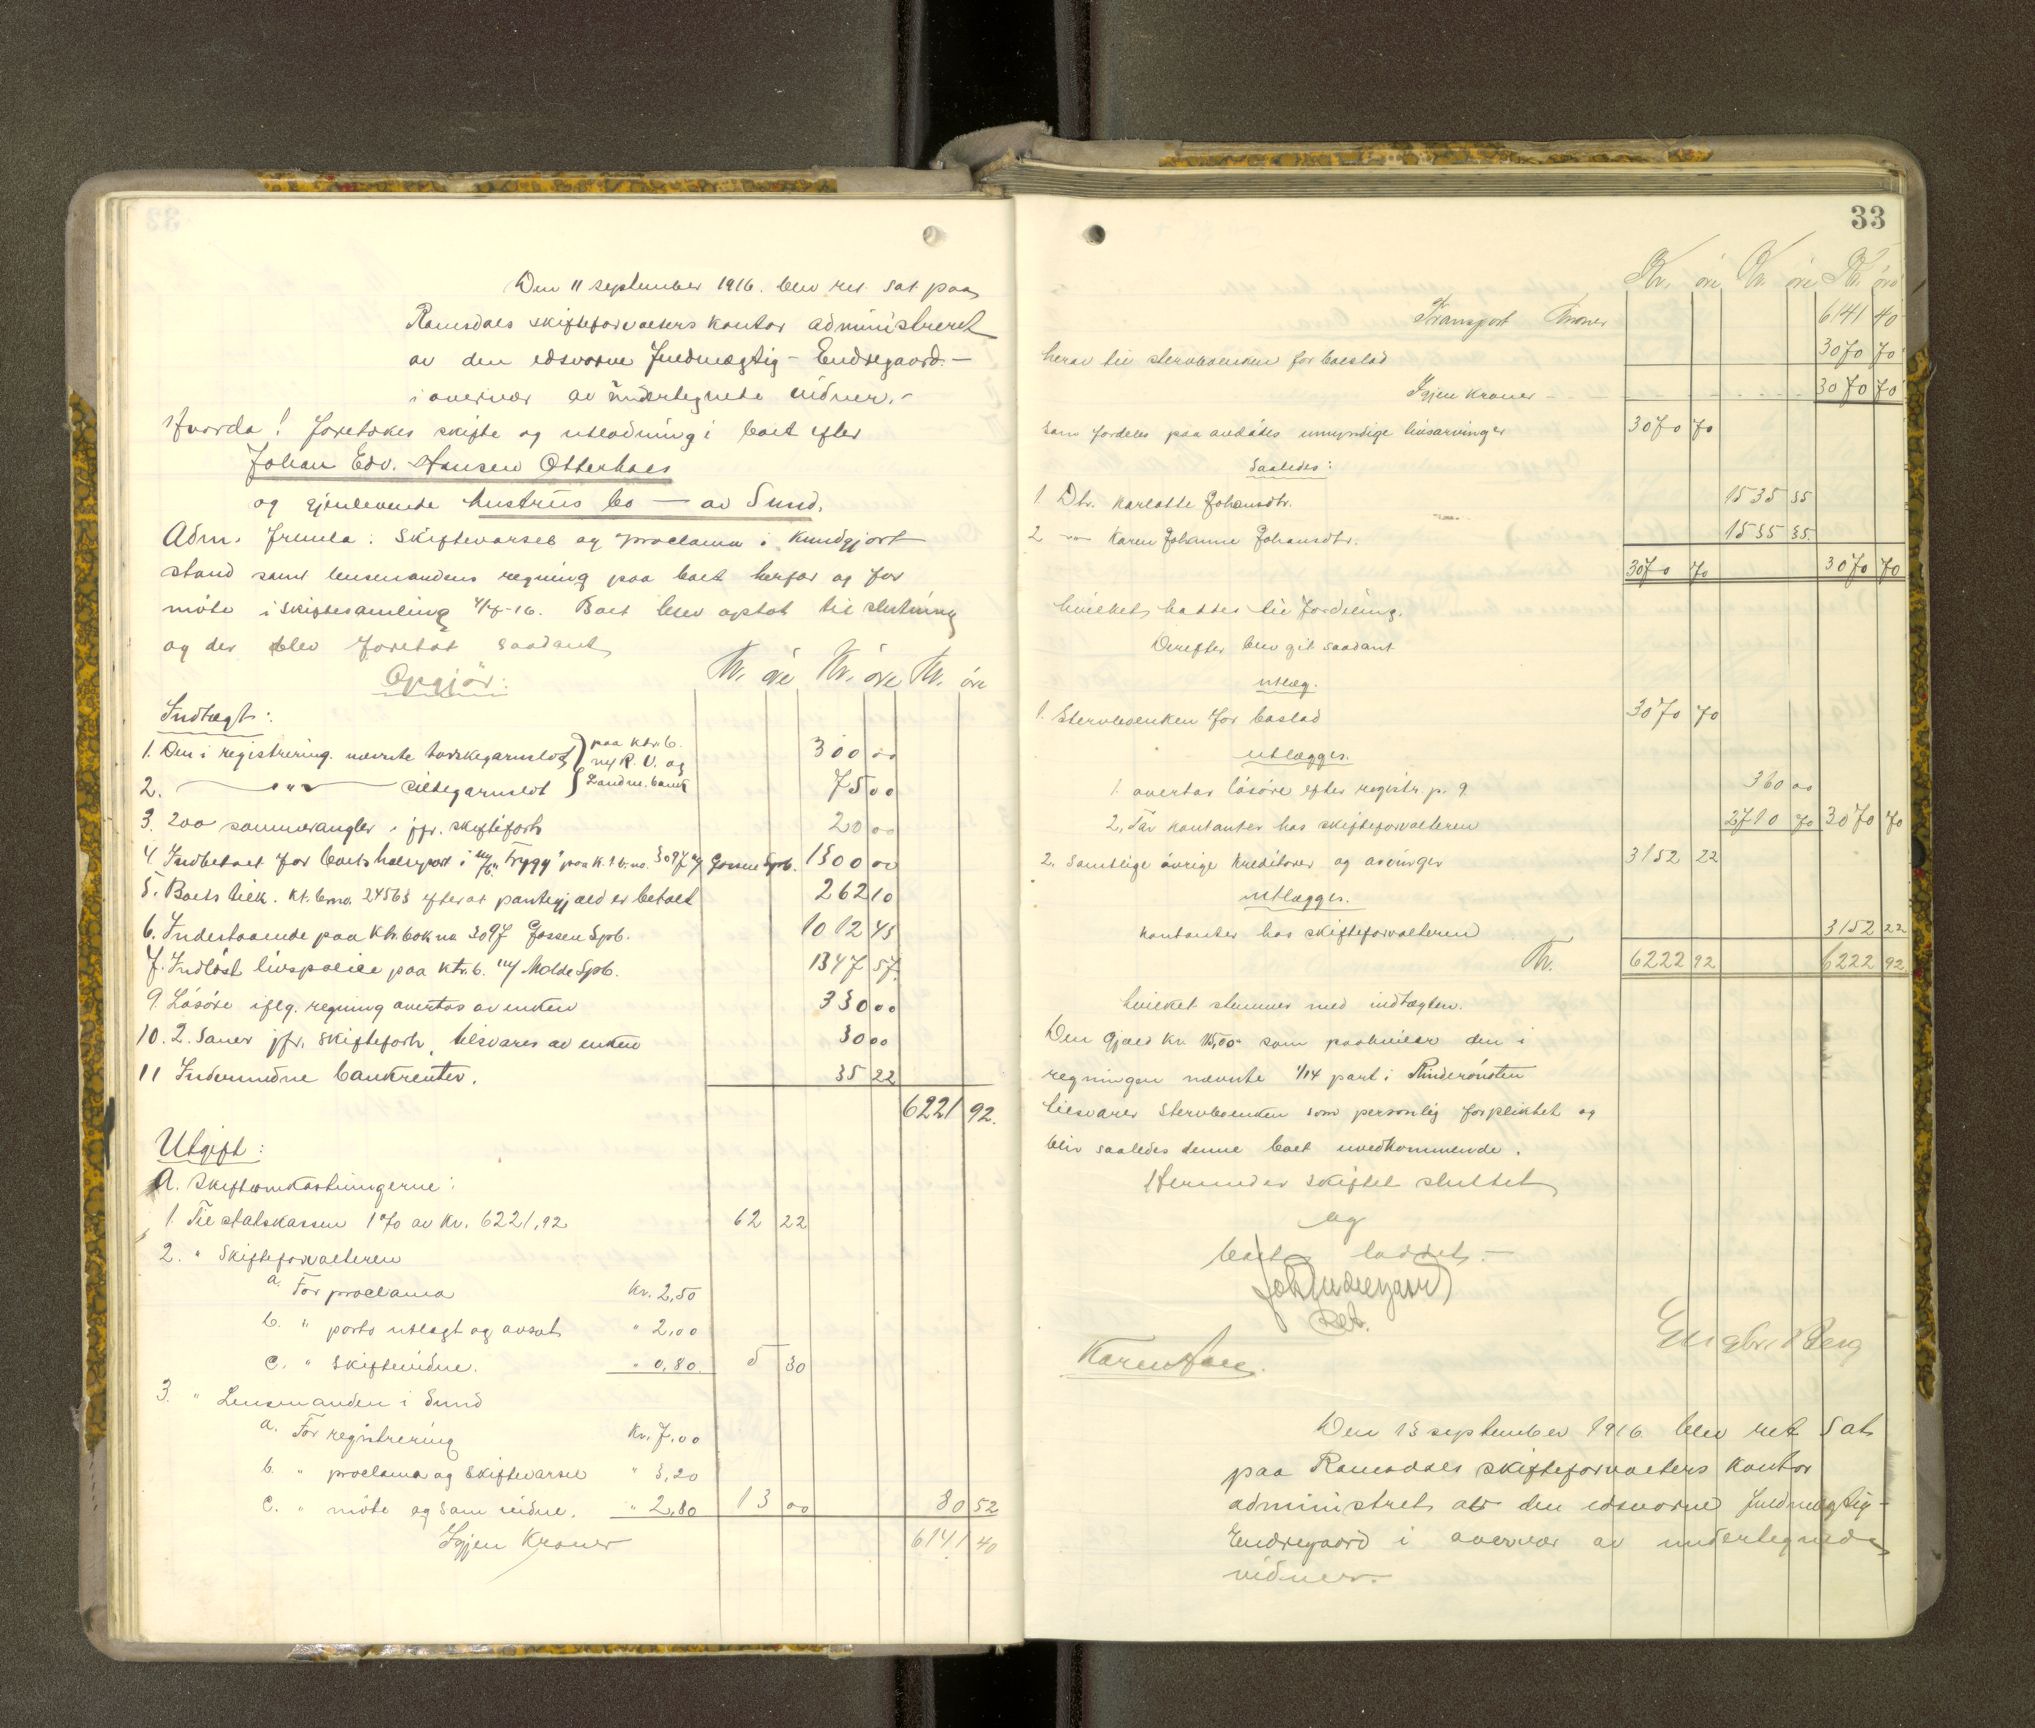 Den 11 september 1916. blev ret sat paa
Romsdals skifteforvalters kontor administreret
av den edsvorne fuldmægtig - Endregaard. -
i overvær av undertegnete vidner. -
Hvorda! Foretokes skifte og utlodning i boet efter
Johan Edv. Hansen Otterhals
og gjenlevende hustrus bo — av Sund.
Adm. fremla: Skiftevarsel og proclama i kundgjort
stand samt lensmandens regning paa boet herfor og for
møte i skiftesamling Boet blev optat til slutning
og der blev foretat saadant
Opgjør:
Kr. øre Kr. øre Kr. øre
Indtægt:
1. Den i registrering. nævnte torskegarnslot } paa ktr.b. 300 00
m/ R. V. og
2. —— " —— sildegarnslot } Landm. bank 75 00
3. 200 sommerangler jfr. skifteforh 20 00
4. Indbetalt for boets halvpart i m/k. "Trygg" paa k.t.b. no. 3097 m/ Gossen Spb. 1500 00
5. Boets tilk. kt.b.no. 24563 efterat pantegjæld er betalt 262 10
6. Indestaaende paa ktr.bok no 3097 Gossen Spb. 1012 43
7. Indløst livspolice paa ktr.b. m/ Molde Spb. 1347 57
9. Løsøre iflg. regning overtas av enken 330 00
10. 2. Sauer jfr. skifteforh, tilsvares av enken 30 00
11 Indvundne bankrenter. 35 22
6221 92.
Utgift:
A. Skifteomkostningerne:
1. Til statskassen 1% av Kr. 6221,92 62 22
2. " Skifteforvalteren
a. For proclama Kr. 2,50
b. " porto utlagt og avsat " 2,00
c. " skiftevidne. " 0,80. 5 30
3. " Lensmanden i Sund
a. For registrering Kr. 7,00
b. " proclama og skiftevarsel " 3,20
c. " møte og som vidne. " 2,80 13 00 80 52
Igjen Kroner 6141 40
33
Kr. øre Kr. øre Kr. øre
Transport Kroner 6141 40
herav til stervboenken for boeslod 3070 70
Igjen Kroner - 3070 70
som fordeles paa avdødes umyndige livsarvinger 3070 70
saaledes:
1. Dtr. Karlotte Johansdtr. 1535 35
2 — Karen Johanne Johansdtr. 1535 35.
3070 70 3070 70
hvilket haddes til fordeling.
Derefter blev git saadant
utlæg.
1. Stervboenken for boslod 3070 70
utlægges.
1. overtar løsøre efter registr. p. 9 360 00
2, Tar kontanter hos skifteforvalteren 2710 70 3070 70
2. Samtlige øvrige kreditorer og arvinger 3152 22
utlægges.
kontanter hos skifteforvalteren 3152 22
Kr. 6222 92 6222 92
hvilket stemmer med indtægten.
Den gjæld kr. 15,00 som paahviler den i
regningen nævnte 1/14 part i
tilsvarer stervboenken som personlig forpliktet og
blir saaledes denne boet uvedkommende.
Herunder skiftet sluttet
og
boet loddet. —
Joh Endregaard
set.
Engbr. Berg
Karen
Den 13 september 1916 blev ret sat
paa Romsdals skifteforvalters kontor
administret av den edsvorne fuldmægtig -
Endregaard i overvær av undertegnede
vidner. -